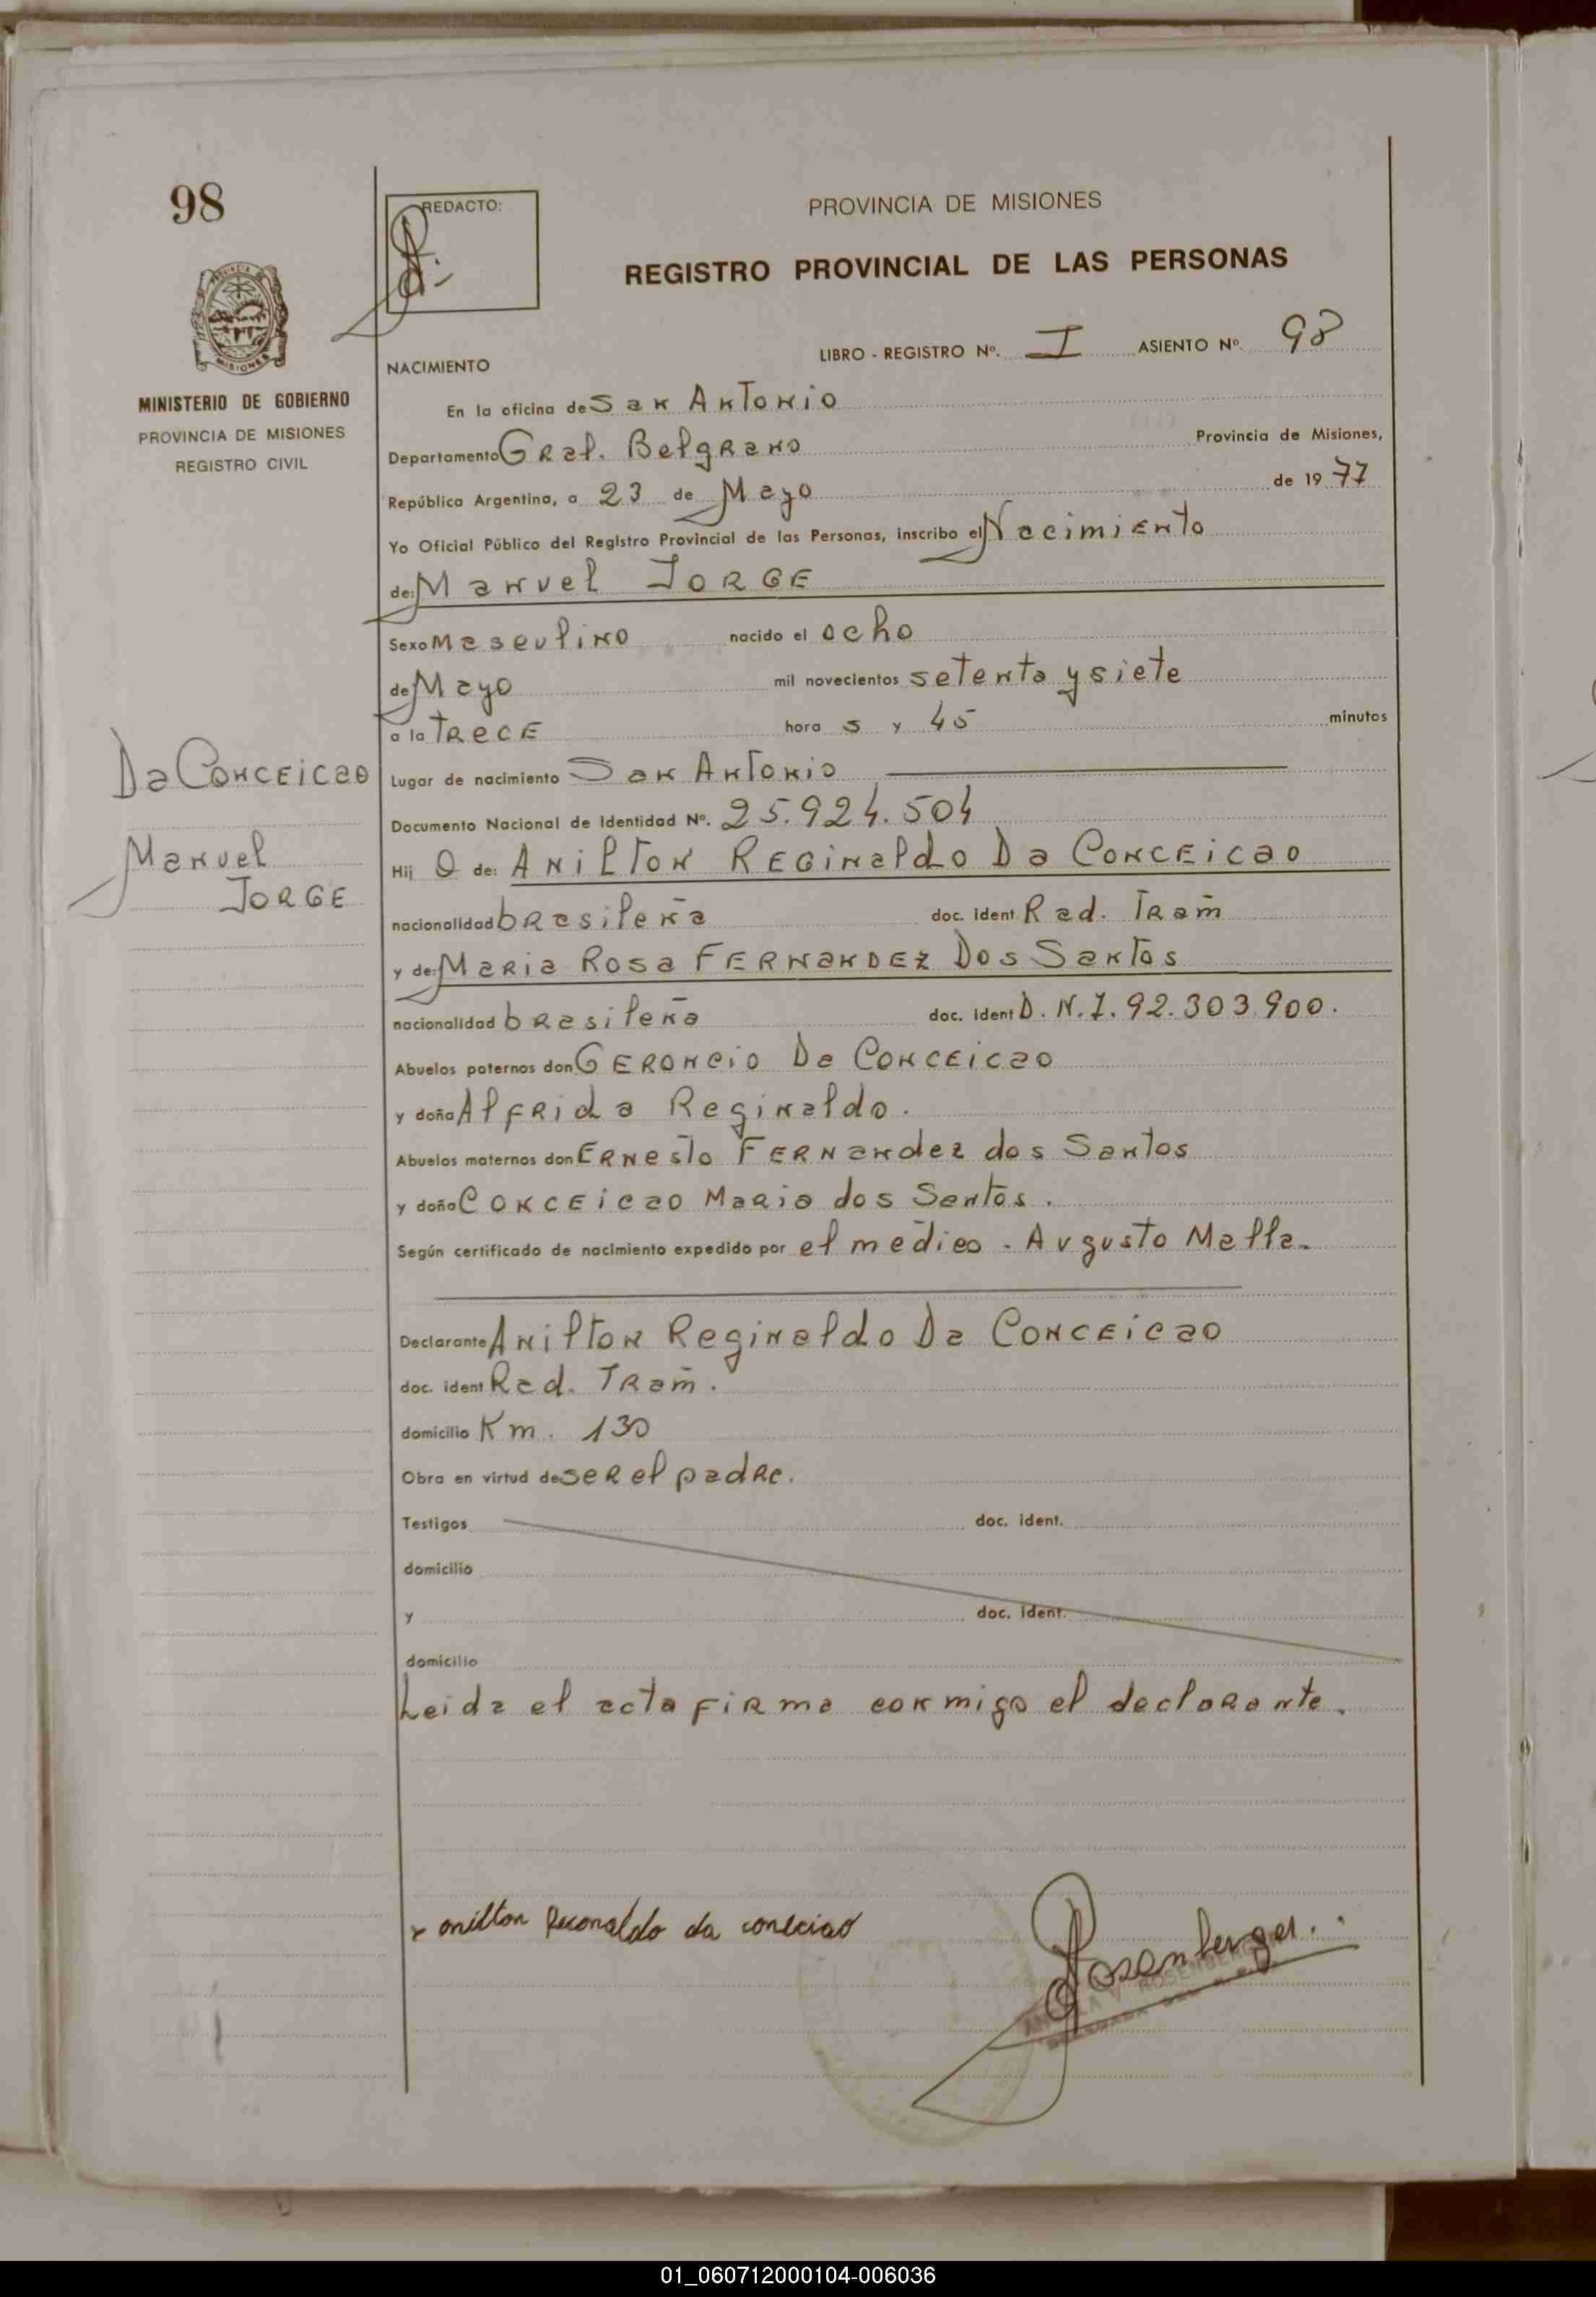 98
REDACTO:
PROVINCIA DE MISIONES
REGISTRO PROVINCIAL DE LAS PERSONAS
MINISTERIO DE GOBIERNO
PROVINCIA DE MISIONES
REGISTRO CIVIL
LIBRO - REGISTRO Nº. I ASIENTO Nº. 98
NACIMIENTO
En la oficina de San Antonio
Departamento Gral. Belgrano Provincia de Misiones,
República Argentina, a 23 de Mayo de 1977
Yo Oficial Público del Registro Provincial de las Personas, inscribo el Nacimiento
de: Manuel JORGE
Sexo masculino nacido el ocho
de Mayo mil novecientos setenta y siete
a la TRECE hora s y 45 minutos
Da Conceicao
Manuel
JORGE
Lugar de nacimiento San Antonio
Documento Nacional de Identidad Nº. 25.924.504
Hij O de: Anilton Reginaldo Da Conceicao
nacionalidad brasileña doc. ident. Rad. Tram
y de: Maria Rosa FERNANDEZ Dos Santos
nacionalidad brasileña doc. ident D.N.I. 92.303.900.
Abuelos paternos don Geroncio Da Conceicao
y doña Alfrida Reginaldo.
Abuelos maternos don Ernesto Fernandez dos Santos
y doña Conceicao Maria dos Santos.
Según certificado de nacimiento expedido por el médico. Augusto Malla.
Declarante Anilton Reginaldo Da Conceicao
doc. ident. Rad. Tram.
domicilio Km. 130
Obra en virtud de ser el padre.
Testigos doc. ident.
domicilio
y doc. ident.
domicilio
Leida el acta firma conmigo el declarante.
x anilton Reconaldo da coneciao
Rosenberger
01_060712000104-006036